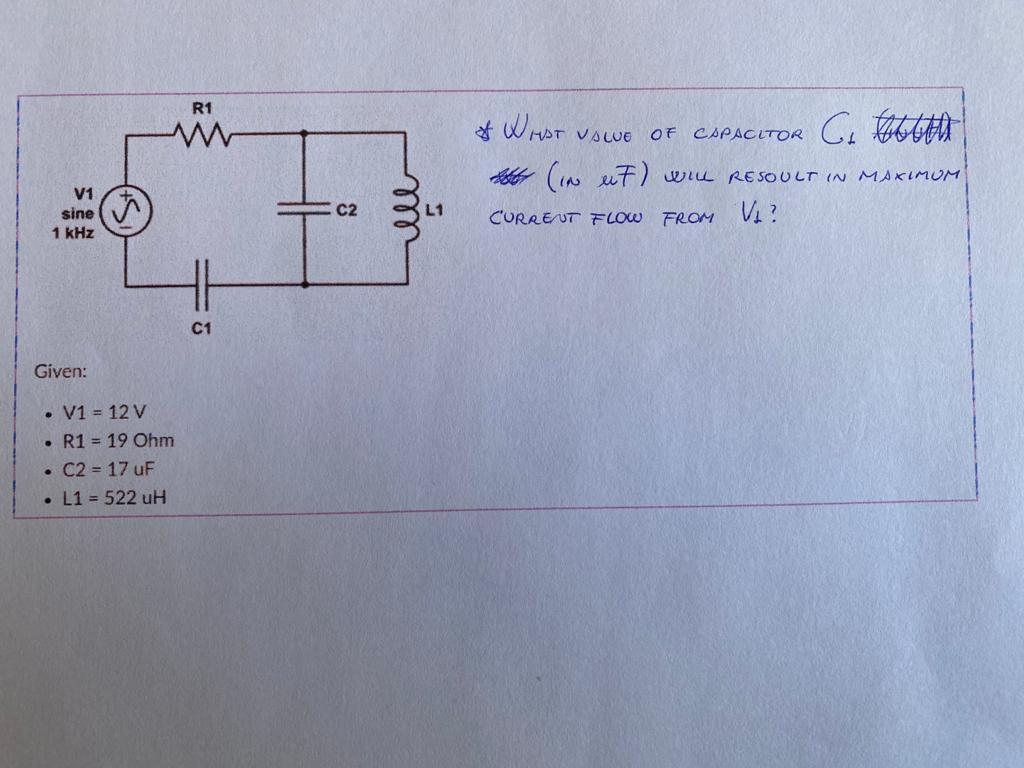 R1
V1
sine
1 kHz
C2
L1
C1
* WHAT VALUE OF CAPACITOR C1
(IN uF) WILL RESOULT IN MAXIMUM
CURRENT FLOW FROM V1?
Given:
• V1 = 12 V
• R1 = 19 Ohm
• C2 = 17 uF
• L1 = 522 uH